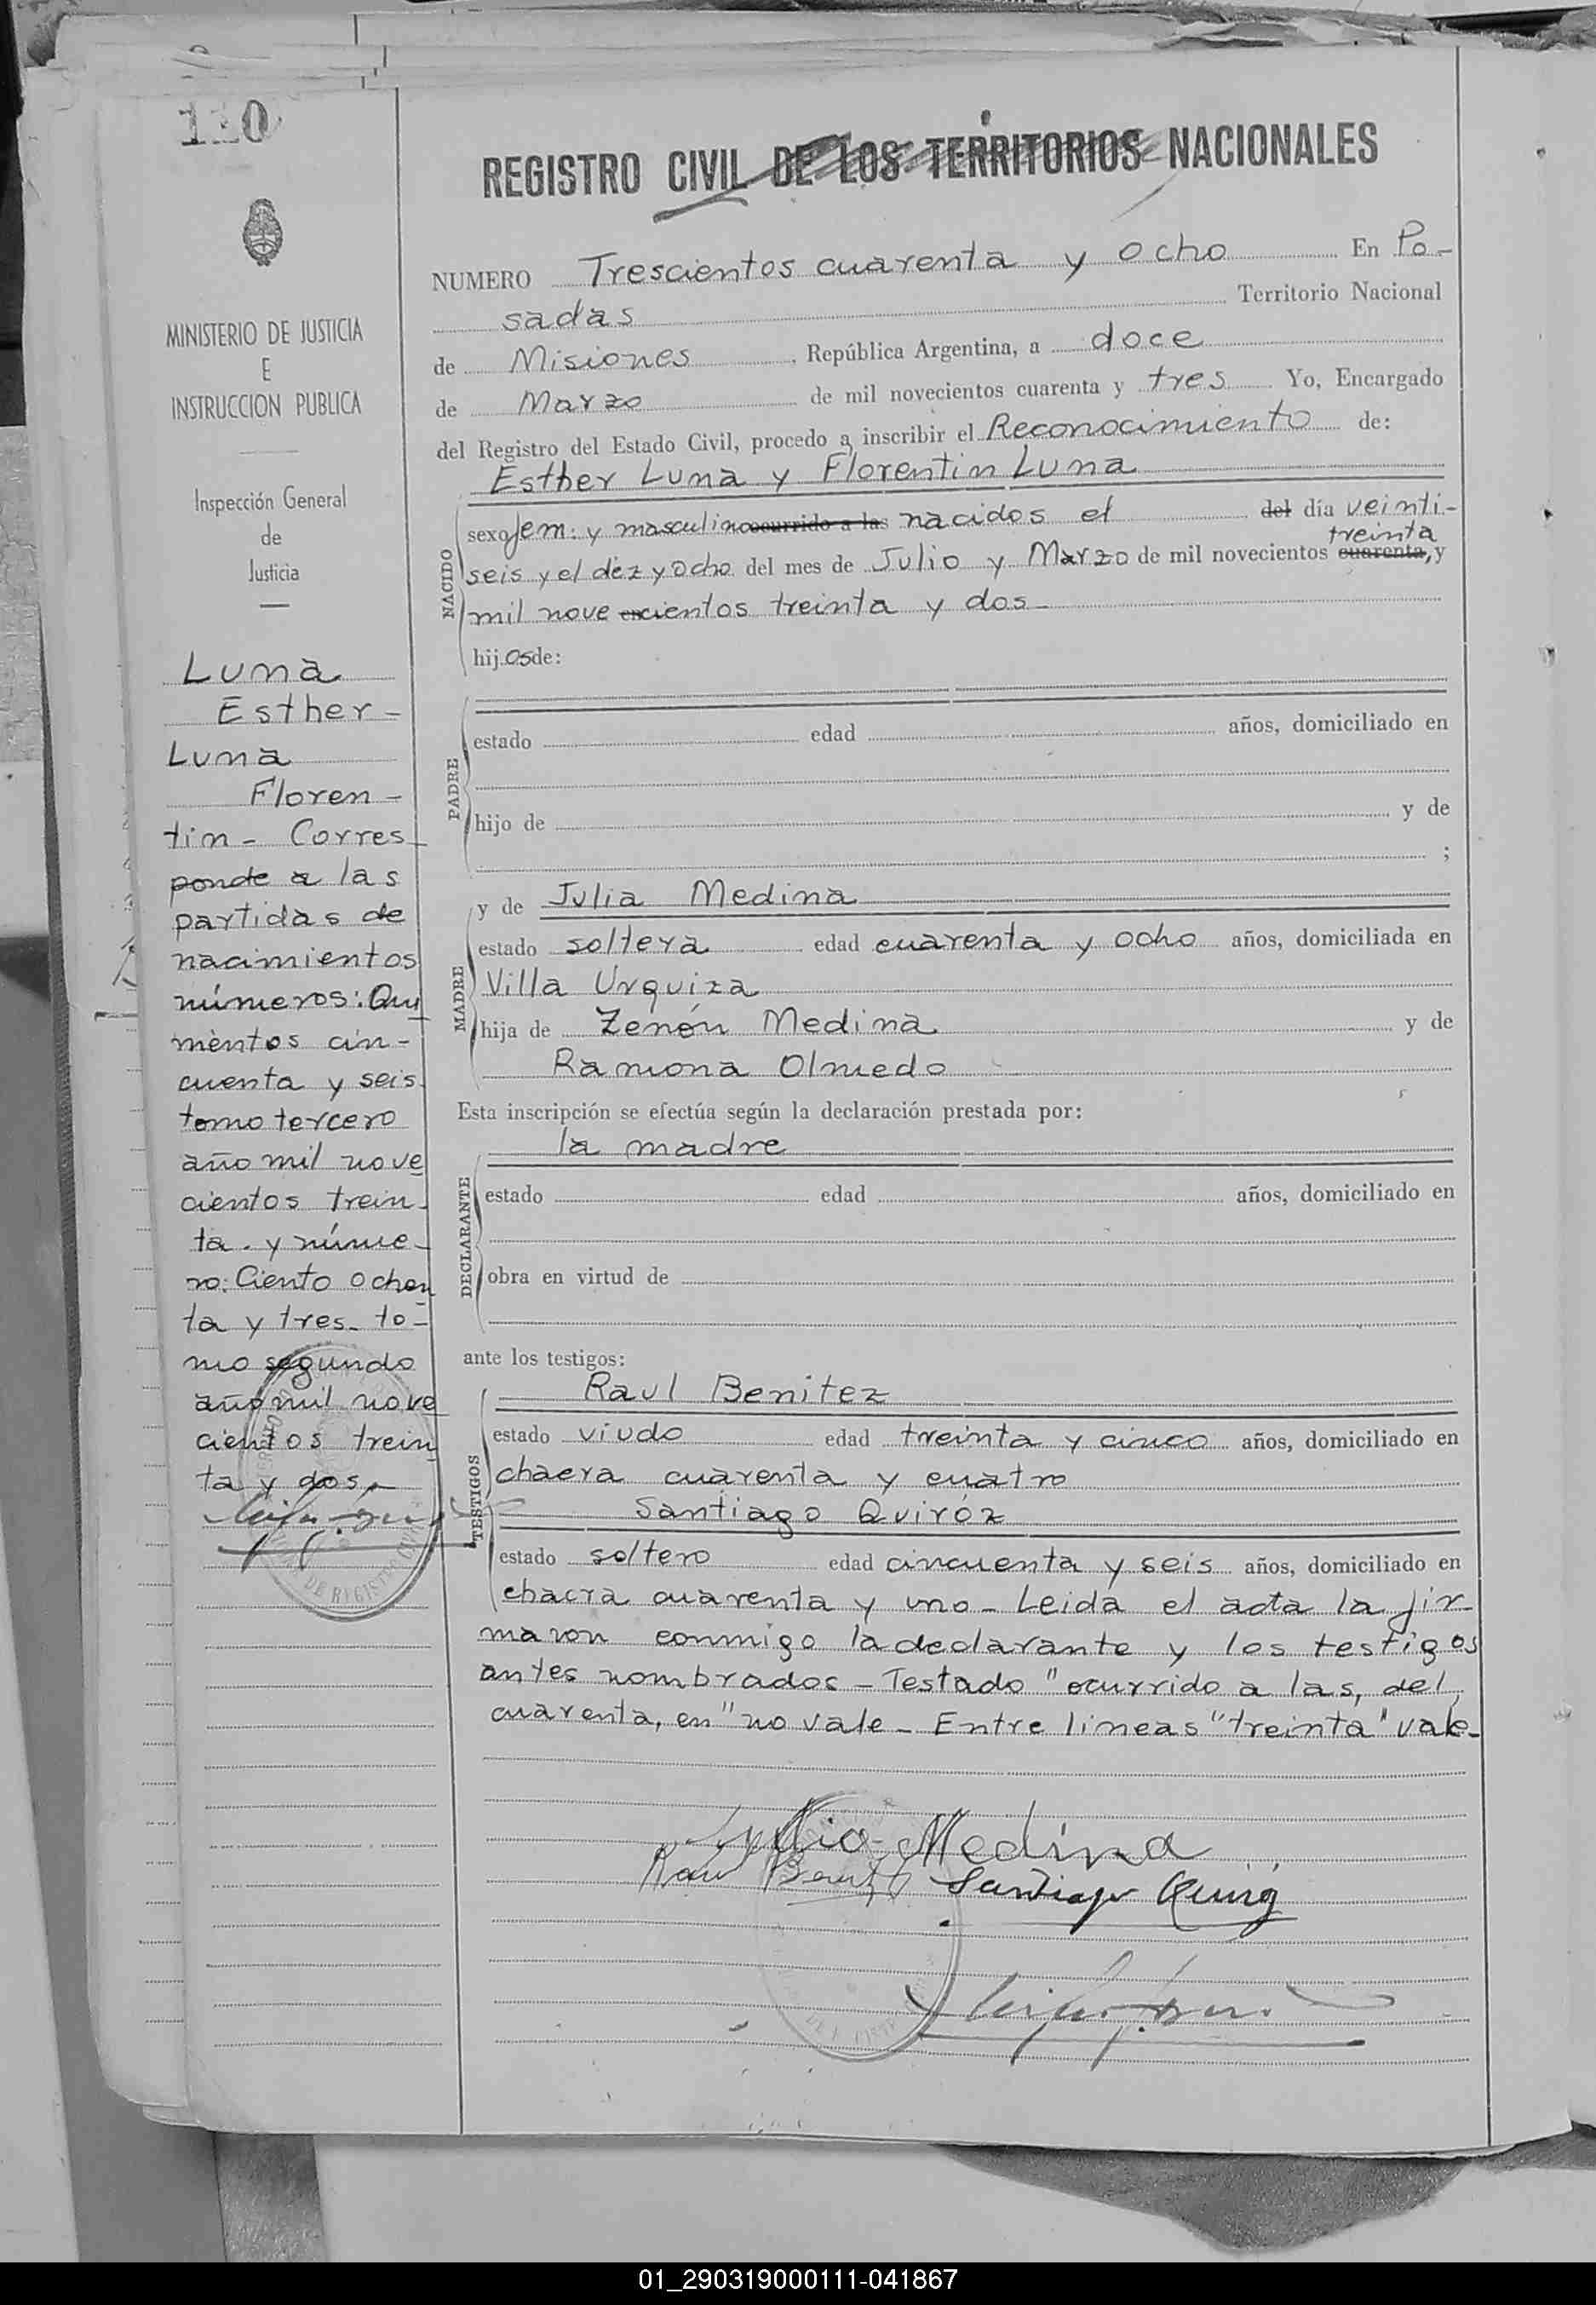 120
MINISTERIO DE JUSTICIA
E
INSTRUCCION PUBLICA
Inspección General
de
Justicia
Luna
Esther -
Luna
Floren -
tin - Corres
ponde a las
partidas de
nacimientos
números: Qui
nientos cin -
cuenta y seis
tomo tercero
año mil nove
cientos trein
ta. y núme -
ro: Ciento ochen
ta y tres - to -
mo segundo
año mil nove
cientos trein
ta y dos -
REGISTRO CIVIL DE LOS TERRITORIOS NACIONALES
NUMERO Trescientos cuarenta y ocho En Po -
sadas Territorio Nacional
de Misiones, República Argentina, a doce
de Marzo de mil novecientos cuarenta y tres Yo, Encargado
del Registro del Estado Civil, procedo a inscribir el Reconocimiento de:
Esther Luna y Florentin Luna
NACIDO
sexo fem: y masculino ocurrido a las nacidos el del día veinti -
treinta
seis y el diez y ocho del mes de Julio y Marzo de mil novecientos cuarenta, y
mil nove cientos treinta y dos -
hijos de:
PADRE
estado edad años, domiciliado en
hijo de y de
;
MADRE
y de Julia Medina
estado soltera edad cuarenta y ocho años, domiciliada en
Villa Urquiza
hija de Zenón Medina y de
Ramona Olmedo
Esta inscripción se efectúa según la declaración prestada por:
la madre
DECLARANTE
estado edad años, domiciliado en
obra en virtud de
ante los testigos:
TESTIGOS
Raul Benitez
estado viudo edad treinta y cinco años, domiciliado en
chacra cuarenta y cuatro
Santiago Quiróz
estado soltero edad cincuenta y seis años, domiciliado en
chacra cuarenta y uno - Leida el acta la fir -
maron conmigo la declarante y los testigos
antes nombrados - Testado "ocurrido a las, del,
cuarenta, en" no vale - Entre lineas "treinta" vale -
Julia Medina
Raul Benitez Santiago Quiroz
01_290319000111-041867